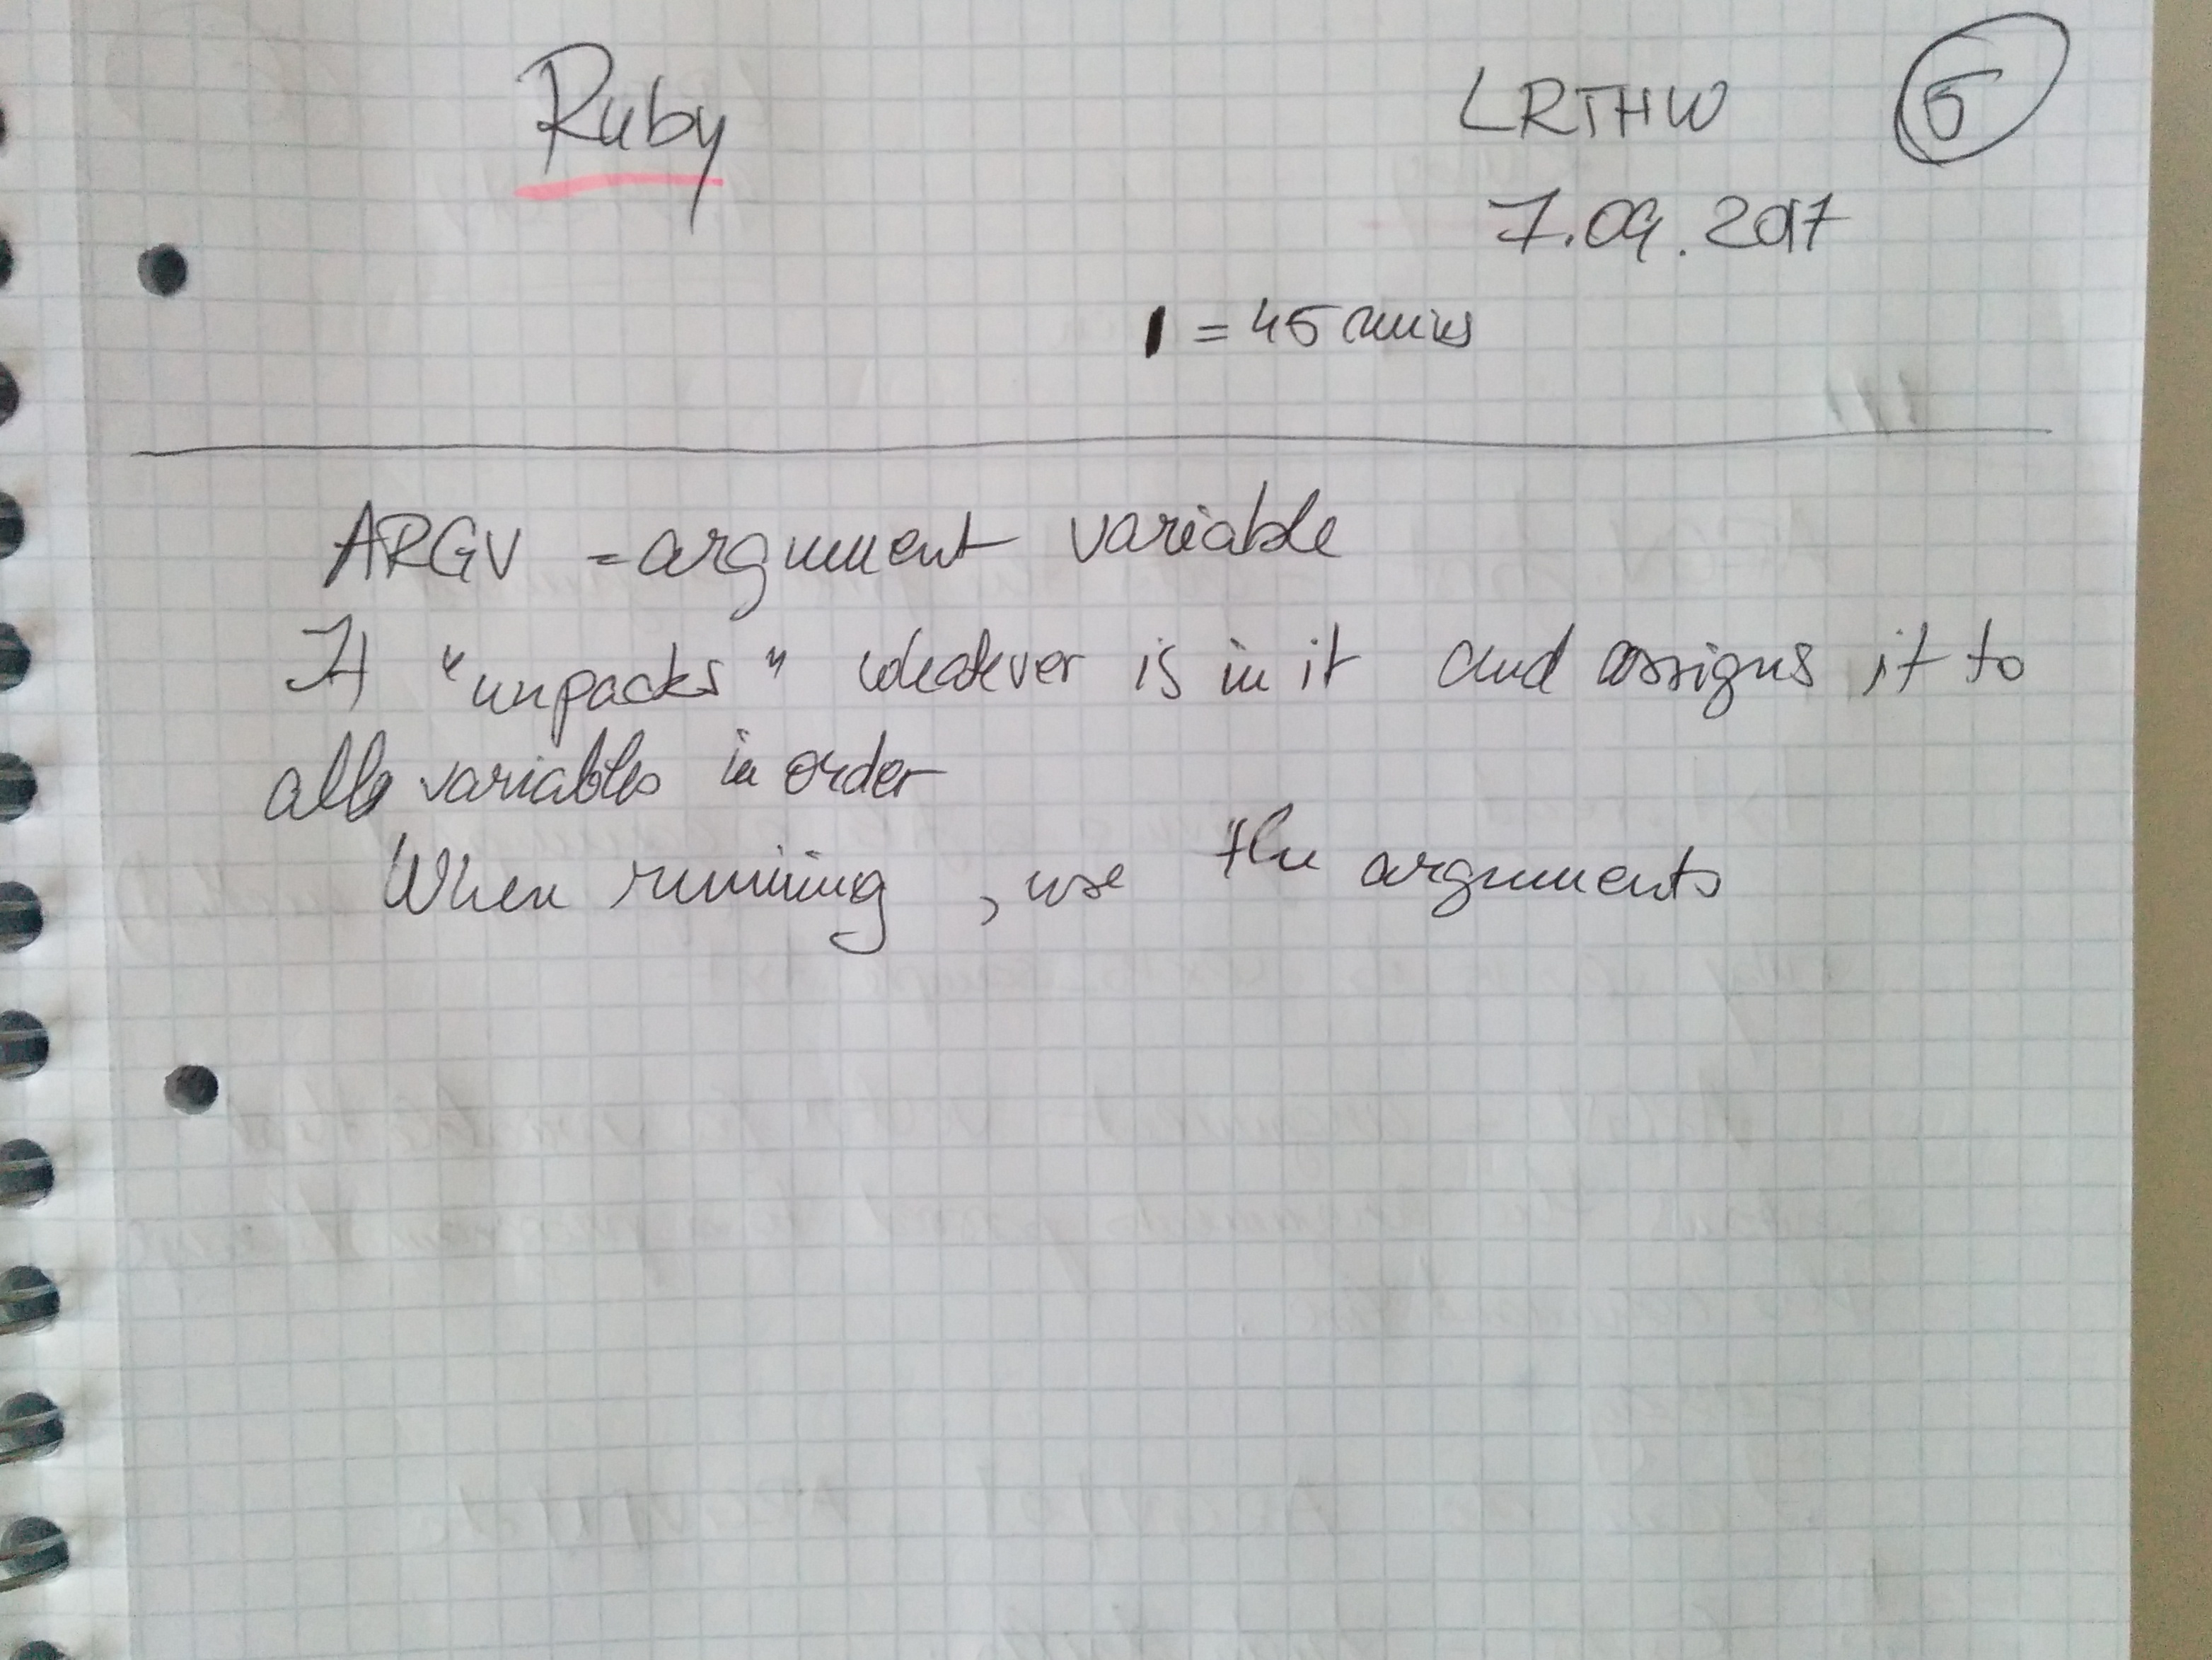 Ruby
LRTHW 5
7.09.2017
I = 45 mins
ARGV = argument variable
It "unpacks" whatever is in it and assigns it to
all variables in order
When running, use the arguments